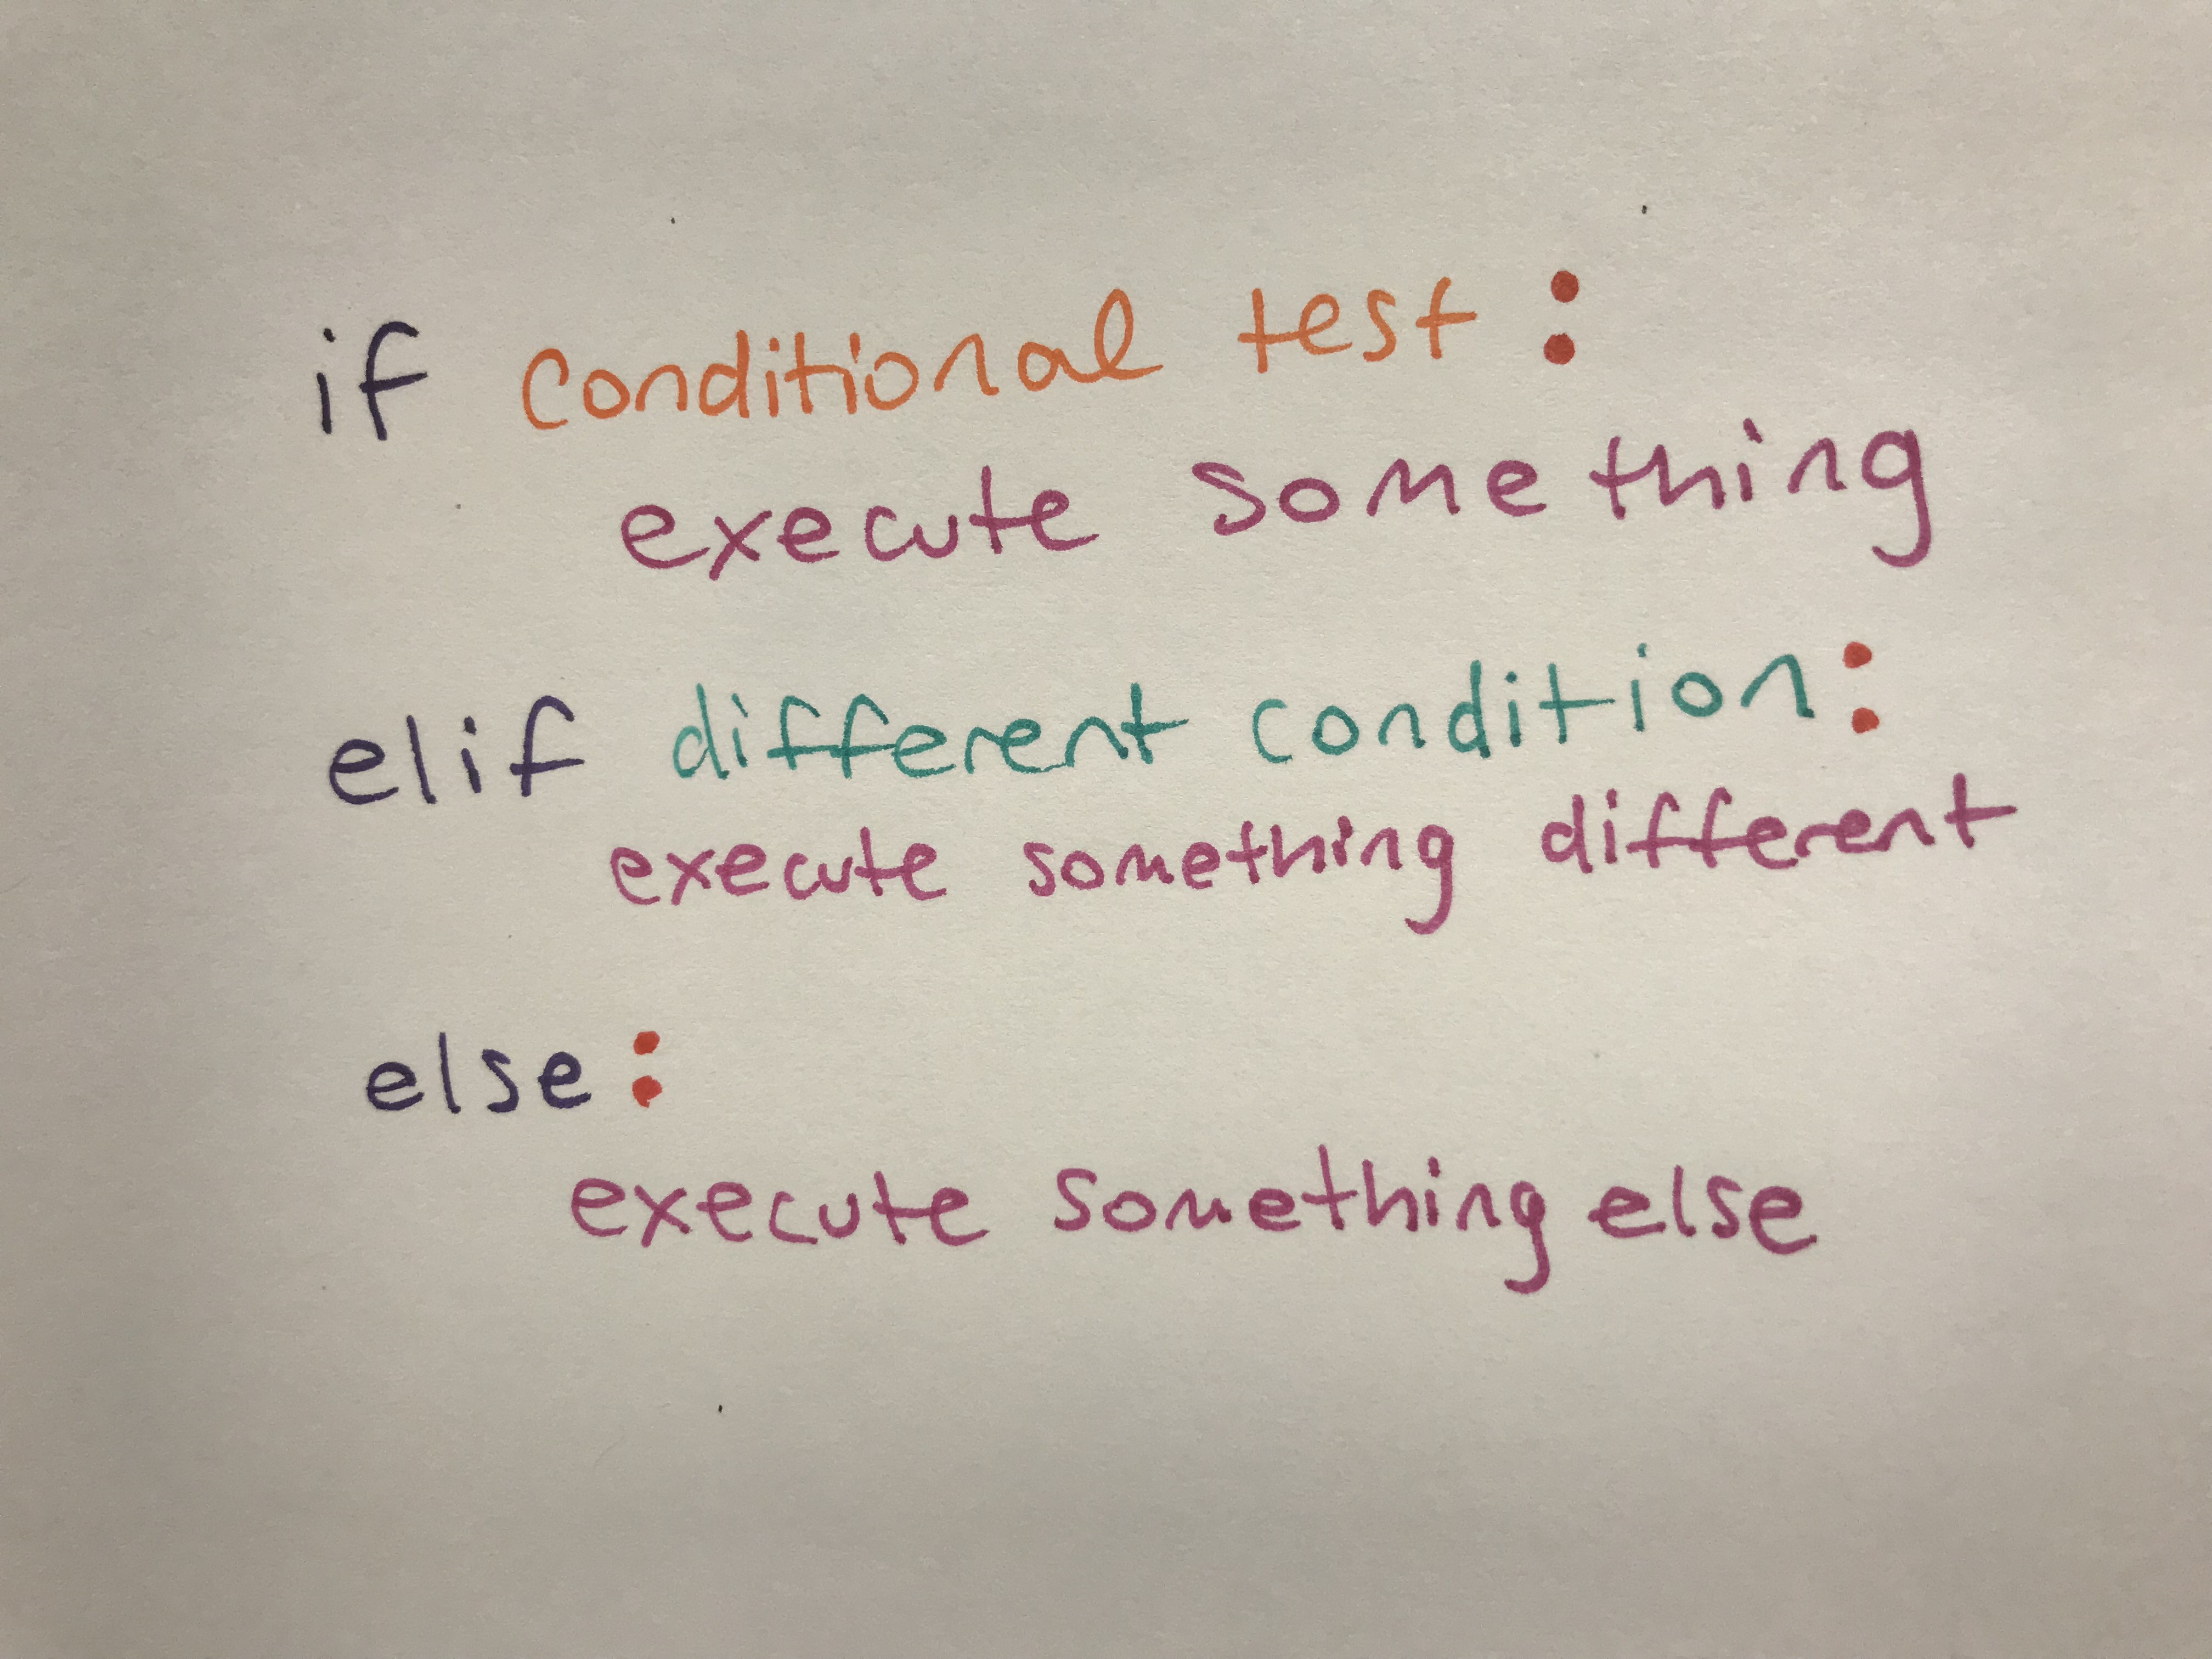 if conditional test :
execute something
elif different condition:
execute something different
else:
execute something else